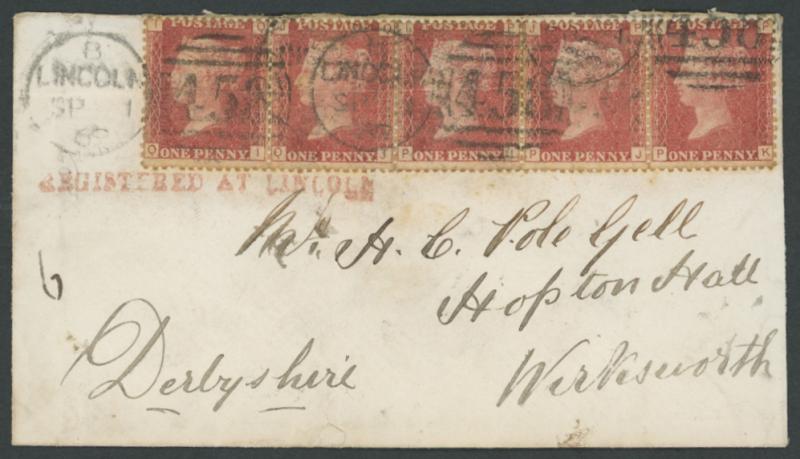 POSTAGE POSTAGE POSTAGE POSTAGE POSTAGE
B
LINCOLN
SP 1
LINCOLN
SP 1
458
458
ONE PENNY ONE PENNY ONE PENNY ONE PENNY ONE PENNY
Q I Q J P P J P K
REGISTERED AT LINCOLN
Mr. H. C. Pole Gell
Hopton Hall
Wirksworth
Derbyshire
6